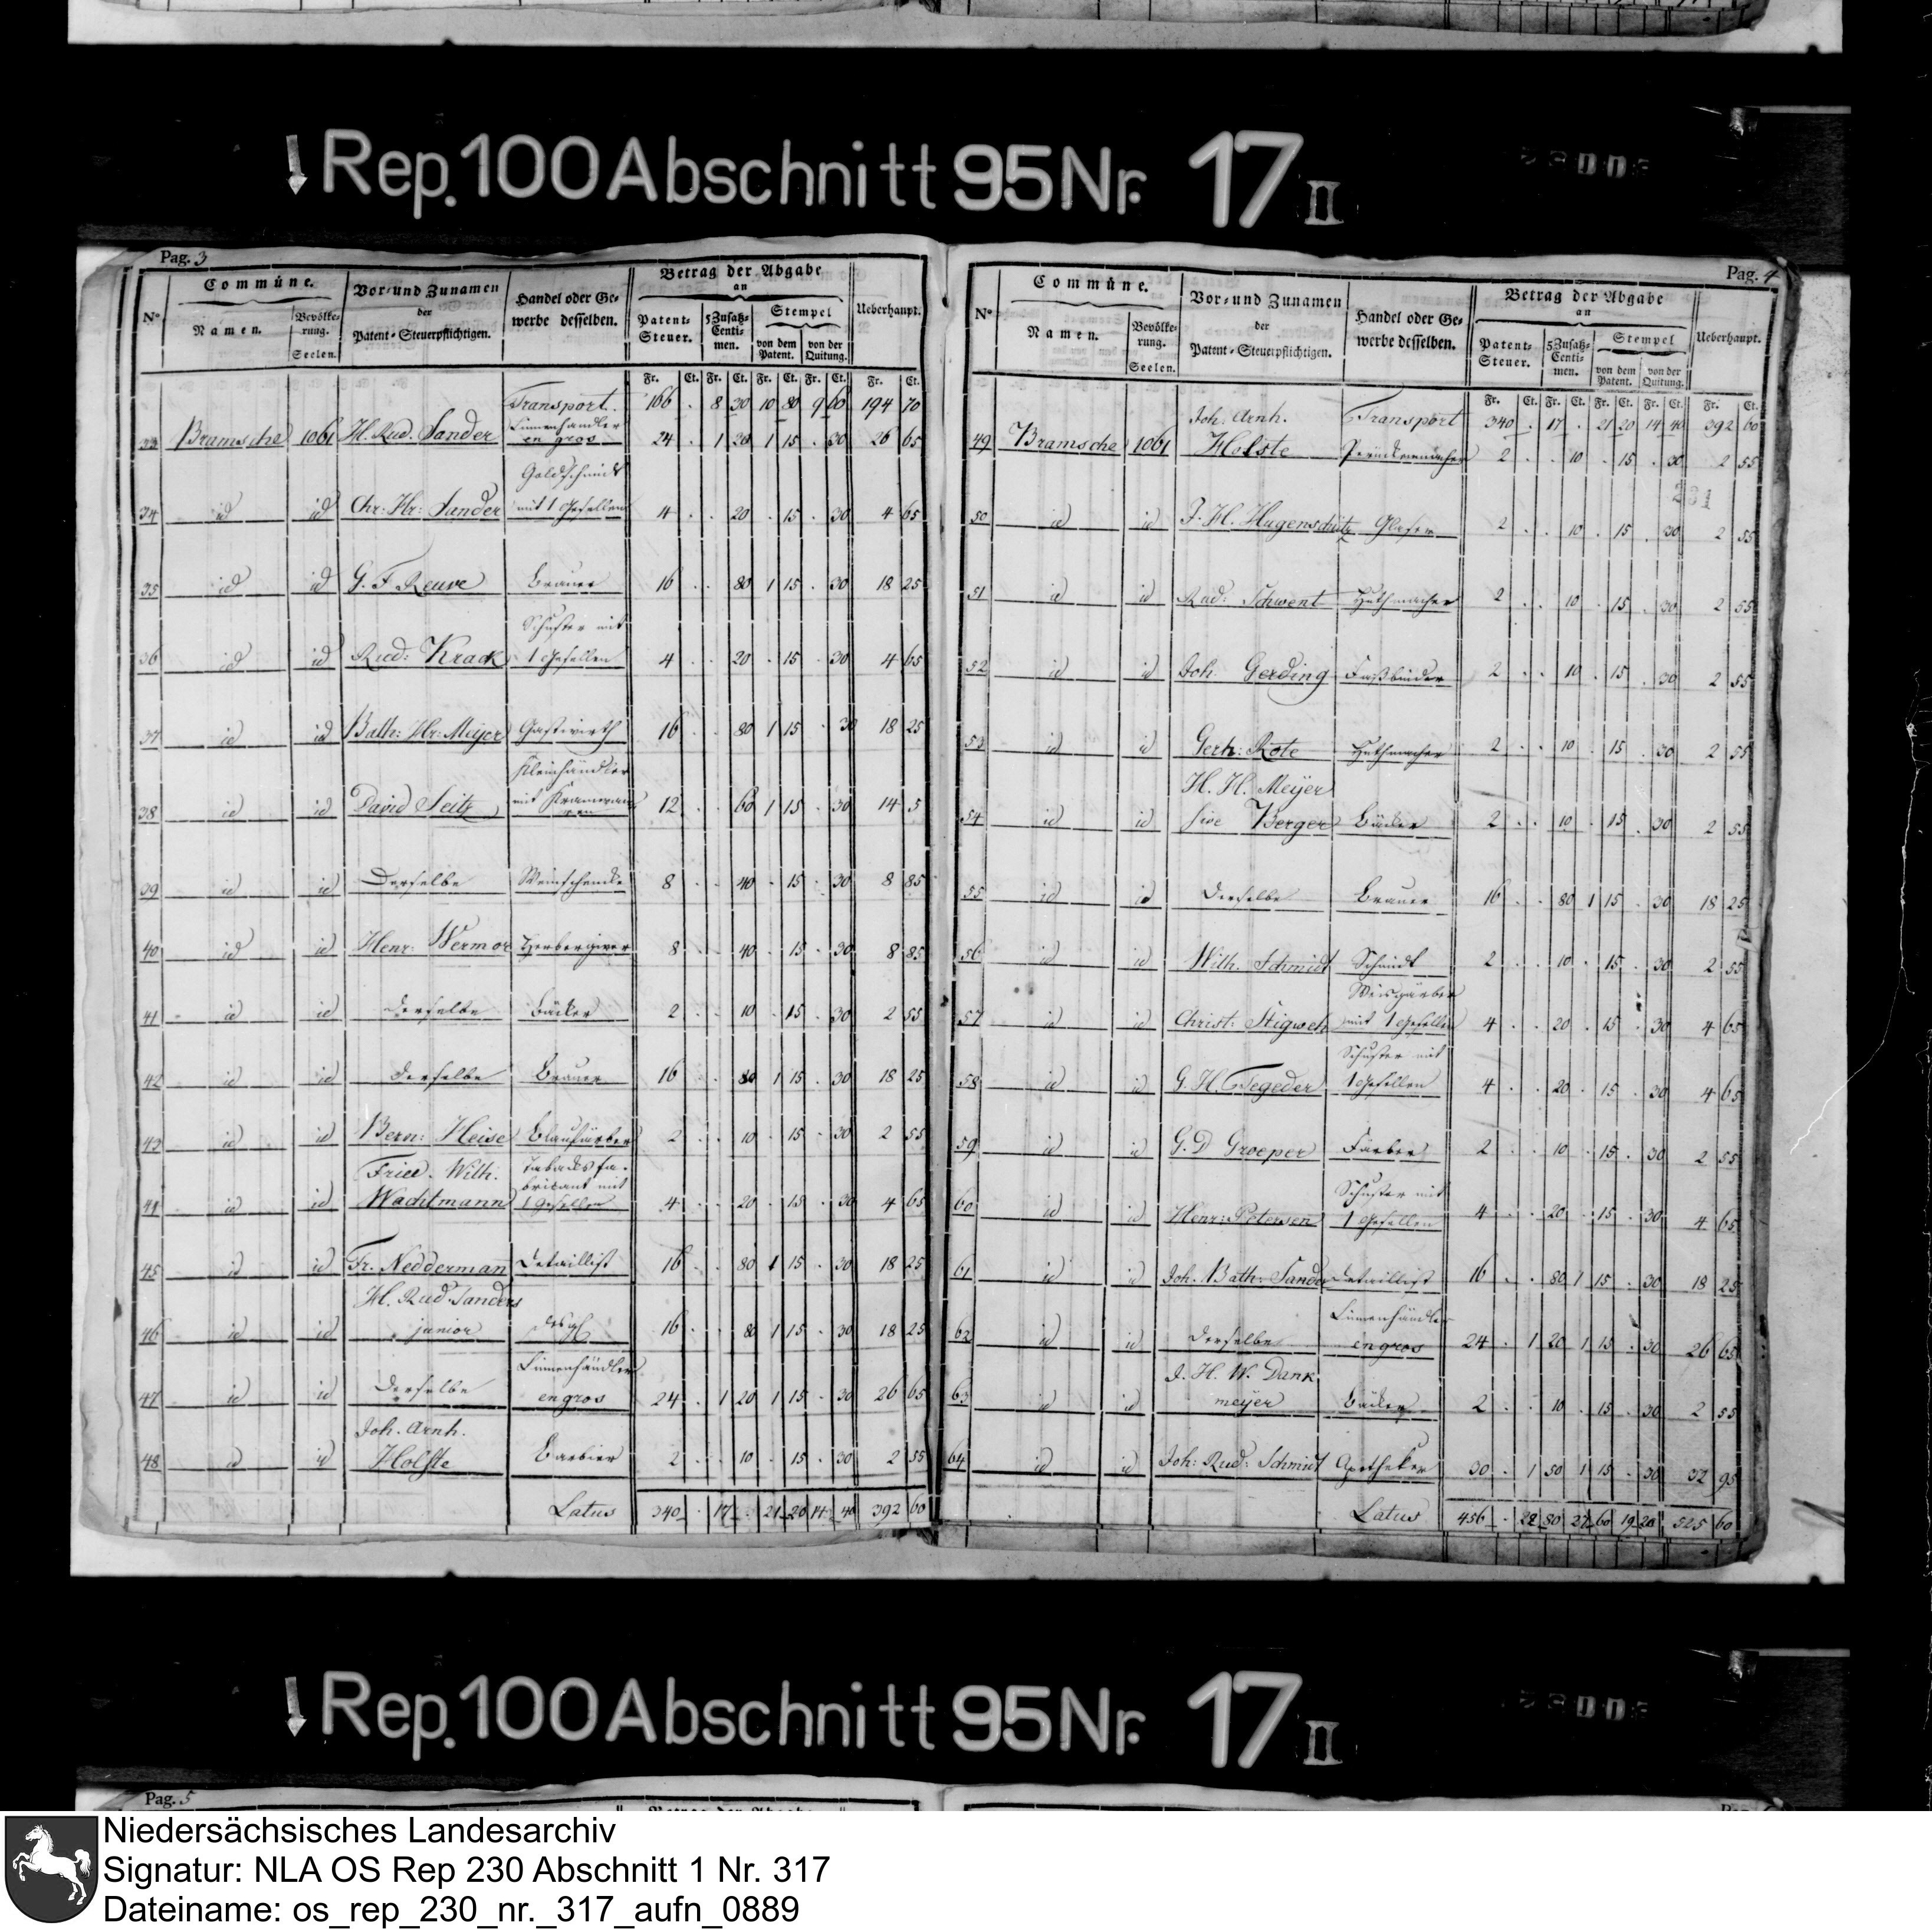 ↓ Rep. 100 Abschnitt 95 Nr. 17 II
Pag. 3
Nº
Commüne.
Namen.
Bevölke-
rung.
Seelen.
Vor- und Zunamen
der
Patent-Steuerpflichtigen.
Handel oder Ge-
werbe desselben.
Betrag der Abgabe
an
Patent-
Steuer.
5 Zusatz-
Centi-
men.
Stempel
von dem
Patent.
von der
Quitung.
Ueberhaupt.
Fr. Ct. Fr. Ct. Fr. Ct. Fr. Ct. Fr. Ct.
Transport. 166 . 8 30 10 80 9 60 194 70
Linnenhandler
33 Bramsche 1061 H. Rud. Sander en gros 24 . 1 20 1 15 . 30 26 65
Goldschmidt
34 id id Chr: Hr: Sander mit 1 Gesellen 4 . . 20 . 15 . 30 4 65
35 id id G. F. Reuve Brauer 16 . . 80 1 15 . 30 18 25
Schuster mit
36 id id Rud: Krack 1 Gesellen 4 . . 20 . 15 . 30 4 65
37 id id Balth: Hr: Meijer Gastwirth 16 . . 80 1 15 . 30 18 25
Kleinhändler
38 id id David Seitz mit Kramwaa 12 . . 60 1 15 . 30 14 5
ren
39 id id Derselbe Weinschenke 8 . . 40 . 15 . 30 8 85
40 id id Henr: Wermor Herbergirer 8 . . 40 . 15 . 30 8 85
41 id id Derselbe Bäcker 2 . . 10 . 15 . 30 2 55
42 id id Derselbe Brauer 16 . . 80 1 15 . 30 18 25
43 id id Bern: Heise Blaufärber 2 . . 10 . 15 . 30 2 55
Fried. Wilh. Tabacksfa-
bricant mit
44 id id Wachtmann 1 Gesellen 4 . . 20 . 15 . 30 4 65
45 id id Fr. Nedderman Detaillist 16 . . 80 1 15 . 30 18 25
H. Rud. Sanders
46 id id junior desgl 16 . . 80 1 15 . 30 18 25
Linnenhändler
47 id id Derselbe en gros 24 . 1 20 1 15 . 30 26 65
Joh. Arnh.
48 id id Holste Barbier 2 . . 10 . 15 . 30 2 55
Latus 340 . 17 . 21 20 14 40 392 60
Pag. 4
Nº
Commüne.
Namen.
Bevölke-
rung.
Seelen.
Vor- und Zunamen
der
Patent-Steuerpflichtigen.
Handel oder Ge-
werbe desselben.
Betrag der Abgabe
an
Patent-
Steuer.
5 Zusatz-
Centi-
men.
Stempel
von dem
Patent.
von der
Quitung.
Ueberhaupt.
Fr. Ct. Fr. Ct. Fr. Ct. Fr. Ct. Fr. Ct.
Joh. Arnh. Transport 340 . 17 . 21 20 14 40 392 60
49 Bramsche 1061 Holste Perückenmacher 2 . . 10 . 15 . 30 2 55
231
50 id id J. H. Hugenschütz Glaser 2 . . 10 . 15 . 30 2 55
51 id id Rud: Schwent Huthmacher 2 . . 10 . 15 . 30 2 55
52 id id Joh. Gerding Faßbinder 2 . . 10 . 15 . 30 2 55
53 id id Gerh: Rote Huthmacher 2 . . 10 . 15 . 30 2 55
H. H. Meyer
54 id id sive Berger Bäcker 2 . . 10 . 15 . 30 2 55
55 id id Derselbe Brauer 16 . . 80 1 15 . 30 18 25
56 id id Wilh. Schmidt Schmidt 2 . . 10 . 15 . 30 2 55
Weisgärber
57 id id Christ: Stigweh mit 1 Gesellen 4 . . 20 . 15 . 30 4 65
Schuster mit
58 id id G. H. Tegeder 1 Gesellen 4 . . 20 . 15 . 30 4 65
59 id id G. D Groeper Färber 2 . . 10 . 15 . 30 2 55
Schuster mit
60 id id Henr: Petersen 1 Gesellen 4 . . 20 . 15 . 30 4 65
61 id id Joh. Balth: Sander Detaillist 16 . . 80 1 15 . 30 18 25
Linnenhändler
62 id id Derselbe en gros 24 . 1 20 1 15 . 30 26 65
J. H. W. Dank
63 id id meyer Bäcker 2 . . 10 . 15 . 30 2 55
64 id id Joh: Rud: Schmidt Apotheker 30 . 1 50 1 15 . 30 32 95
Latus 456 . 22 80 27 60 19 20 525 60
↓ Rep. 100 Abschnitt 95 Nr. 17 II
Pag. 5
Niedersächsisches Landesarchiv
Signatur: NLA OS Rep 230 Abschnitt 1 Nr. 317
Dateiname: os_rep_230_nr._317_aufn_0889